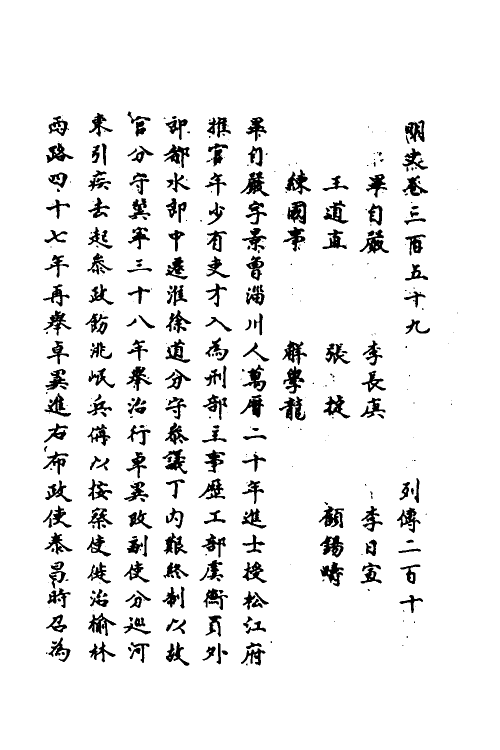 明史卷三百五十九　列傳二百十
畢自嚴　李長庚　李日宣
王道直　張㨗　顧錫疇
練國事　解學龍
畢自嚴字景曾淄川人萬曆二十年進士授松江府
推官年少有吏才入為刑部主事歷工部虞衡員外
郎都水郎中遷淮徐道分守叅議丁內艱終制以故
官分守冀寧三十八年舉治行卓異改副使分巡河
東引疾去起叅政飭洮岷兵備以按察使徙治榆林
西路四十七年再舉卓異進右布政使泰昌時召為